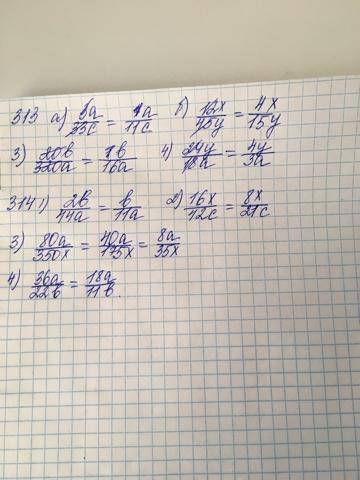 313 a) 3a/33c = 1a/11c б) 12x/45y = 4x/15y
3) 20b/320a = 1b/16a 4) 24y/18a = 4y/3a
314 1) 2b/44a = b/11a 2) 16x/42c = 8x/21c
3) 80a/350x = 40a/175x = 8a/35x
4) 36a/22b = 18a/11b.